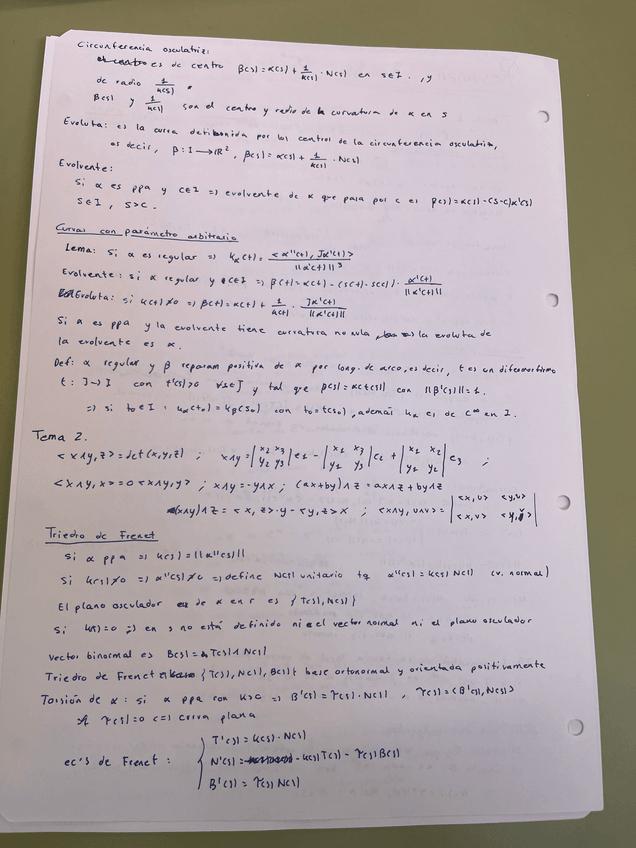 Circunferencia osculatriz:
es de centro β(s)=α(s)+ 1/k(s) · N(s) en s∈I , y
de radio 1/k(s) .
β(s) y 1/k(s) son el centro y radio de la curvatura de α en s
Evoluta: es la curva definida por los centros de la circunferencia osculatriz,
es decir, β: I → ℝ², β(s)=α(s)+ 1/k(s) · N(s)
Evolvente:
Si α es ppa y c∈I => evolvente de α que pasa por c es β(s)=α(s)-(s-c)α'(s)
s∈I, s>c.
Curvas con parámetro arbitrario
Lema: Si α es regular => kα(t)= <α''(t), Jα'(t)> / ||α'(t)||³
Evolvente: si α regular y c∈I => β(t)=α(t) - (s(t)-s(c)) · α'(t) / ||α'(t)||
Evoluta: si k(t)≠0 => β(t)=α(t)+ 1/k(t) · Jα'(t) / ||α'(t)||
Si α es ppa y la evolvente tiene curvatura no nula, la evoluta de
la evolvente es α.
Def: α regular y β reparam positiva de α por long. de arco, es decir, t es un difeomorfismo
t: J → I con t'(s)>0 ∀s∈J y tal que β(s)=α(t(s)) con ||β'(s)||=1.
=> si t₀∈I: kα(t₀)=kβ(s₀) con t₀=t(s₀), además kα es de C^∞ en I.
Tema 2.
<x∧y,z>=det(x,y,z) ; x∧y = |x₂ x₃ / y₂ y₃| e₁ - |x₁ x₃ / y₁ y₃| e₂ + |x₁ x₂ / y₁ y₂| e₃ ;
<x∧y,x>=0 <x∧y,y> ; x∧y=-y∧x ; (ax+by)∧z = ax∧z + by∧z
(x∧y)∧z = <x,z>·y - <y,z>x ; <x∧y,u∧v> = |<x,u> <y,u> / <x,v> <y,v>|
Triedro de Frenet
Si α ppa => k(s)=||α''(s)||
Si k(s)≠0 => α''(s)≠0 => define N(s) unitario tq α''(s)=k(s)N(s) (v. normal)
El plano osculador de α en r es {T(s),N(s)}
Si k(s)=0 => en s no está definido ni el vector normal ni el plano osculador
vector binormal es B(s)=T(s)∧N(s)
Triedro de Frenet {T(s),N(s),B(s)} base ortonormal y orientada positivamente
Torsión de α: si α ppa con k>0 => B'(s)=τ(s)·N(s) , τ(s)=<B'(s),N(s)>
τ(s)=0 <=> curva plana
ec's de Frenet : { T'(s)=k(s)·N(s)
N'(s)= -k(s)T(s) - τ(s)B(s)
B'(s)=τ(s)N(s)